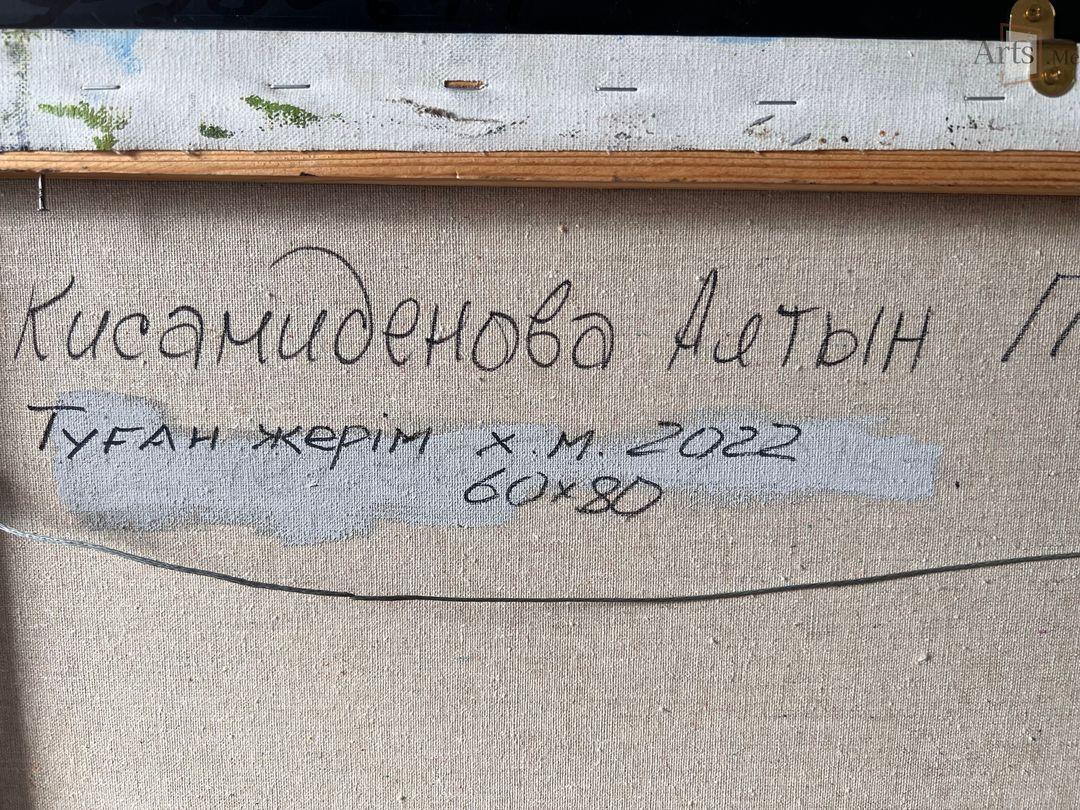 Arts.Me
Кисамиденова Алтын
Туған жерім х.м. 2022
60х80